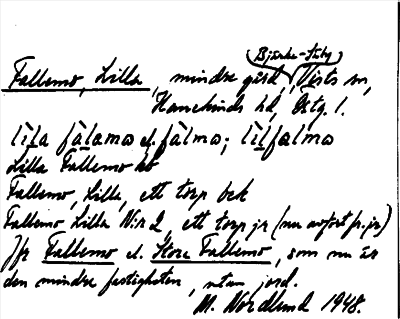 (Björke-Säby)
Fallemo, Lilla, mindre gård, Vists sn,
Hanekinds hd, Östg. l.
lìla fàlamo el. fàlmo; lìlfalmo
Lilla Fallemo kb
Fallemo, Lilla, ett torp bek
Fallemo Lilla N:r 2, ett torp jr (nu avfört fr. jr)
Jfr Fallemo el. Stora Fallemo, som nu är
den mindre fastigheten, utan jord.
M. Nordlund 1948.